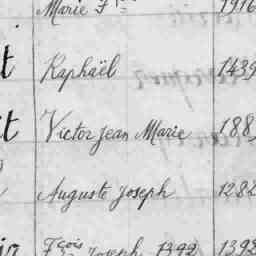 Marie Fse 1916
t Raphaël 1439
it Victor Jean Marie 188
Auguste Joseph 1282
Fçois Joseph 1392 1392